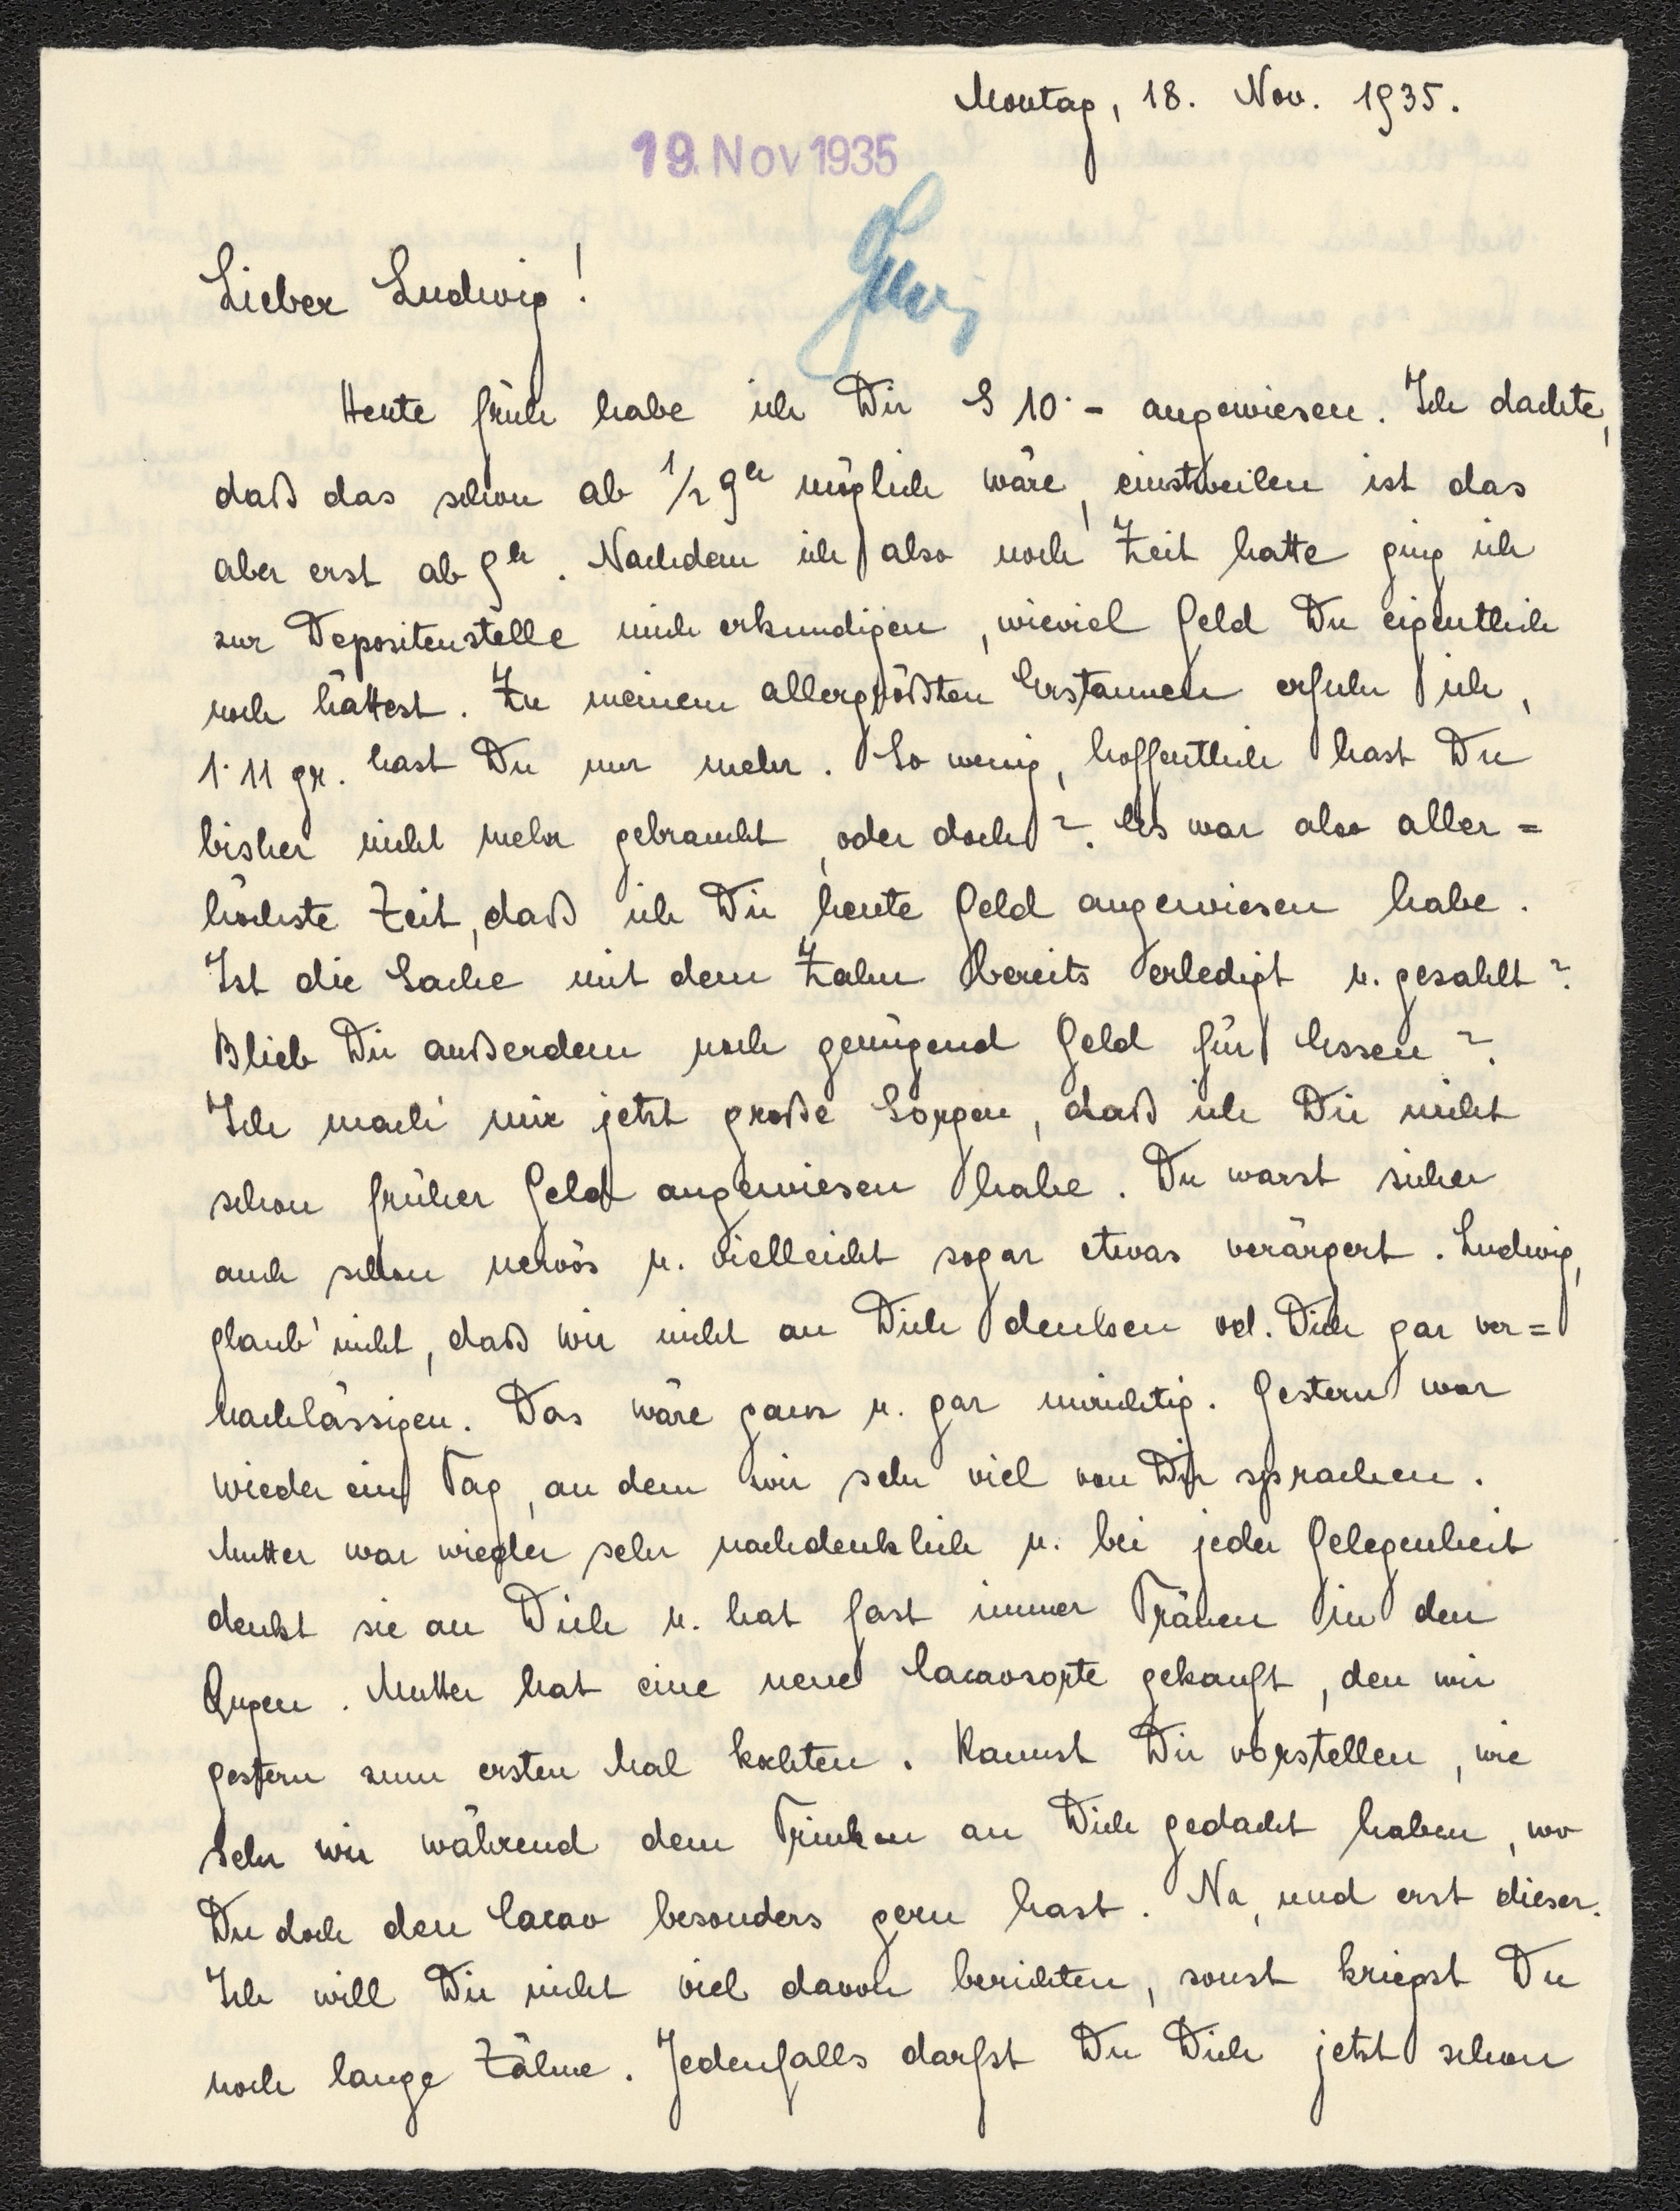 Montag, 18. Nov. 1935.
19. Nov 1935
Lieber Ludwig!
Heute früh habe ich Dir S 10·- angewiesen. Ich dachte,
daß das schon ab 1/2 9h möglich wäre, einstweilen ist das
aber erst ab 9h. Nachdem ich also noch Zeit hatte ging ich
zur Depositenstelle mich erkundigen, wieviel Geld Du eigentlich
noch hättest. Zu meinem allergrößten Erstaunen erfuhr ich,
1·11 gr. hast Du nur mehr. So wenig, hoffentlich hast Du
bisher nicht mehr gebraucht, oder doch? Es war also aller=
höchste Zeit, daß ich Dir heute Geld angewiesen habe.
Ist die Sache mit dem Zahn bereits erledigt u. gezahlt?
Blieb Dir außerdem noch genügend Geld für Essen?
Ich mach' mir jetzt große Sorgen, daß ich Dir nicht
schon früher Geld angewiesen habe. Du warst sicher
auch schon nervös u. vielleicht sogar etwas verärgert. Ludwig,
glaub' nicht, daß wir nicht an Dich denken od. Dich gar ver=
nachlässigen. Das wäre ganz u. gar unrichtig. Gestern war
wieder ein Tag, an dem wir sehr viel von Dir sprachen.
Mutter war wieder sehr nachdenklich u. bei jeder Gelegenheit
denkt sie an Dich u. hat fast immer Tränen in den
Augen. Mutter hat eine neue Cacaosorte gekauft, den wir
gestern zum ersten Mal kochten. Kannst Dir vorstellen, wie
sehr wir während dem Trinken an Dich gedacht haben, wo
Du doch den Cacao besonders gern hast. Na, und erst dieser.
Ich will Dir nicht viel davon berichten, sonst kriegst Du
noch lange Zähne. Jedenfalls darfst Du Dich jetzt schon